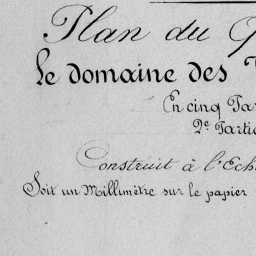 Plan du
Le domaine des
En cinq
2e
Construit à l'Ech
Soit un Millimètre sur le papier